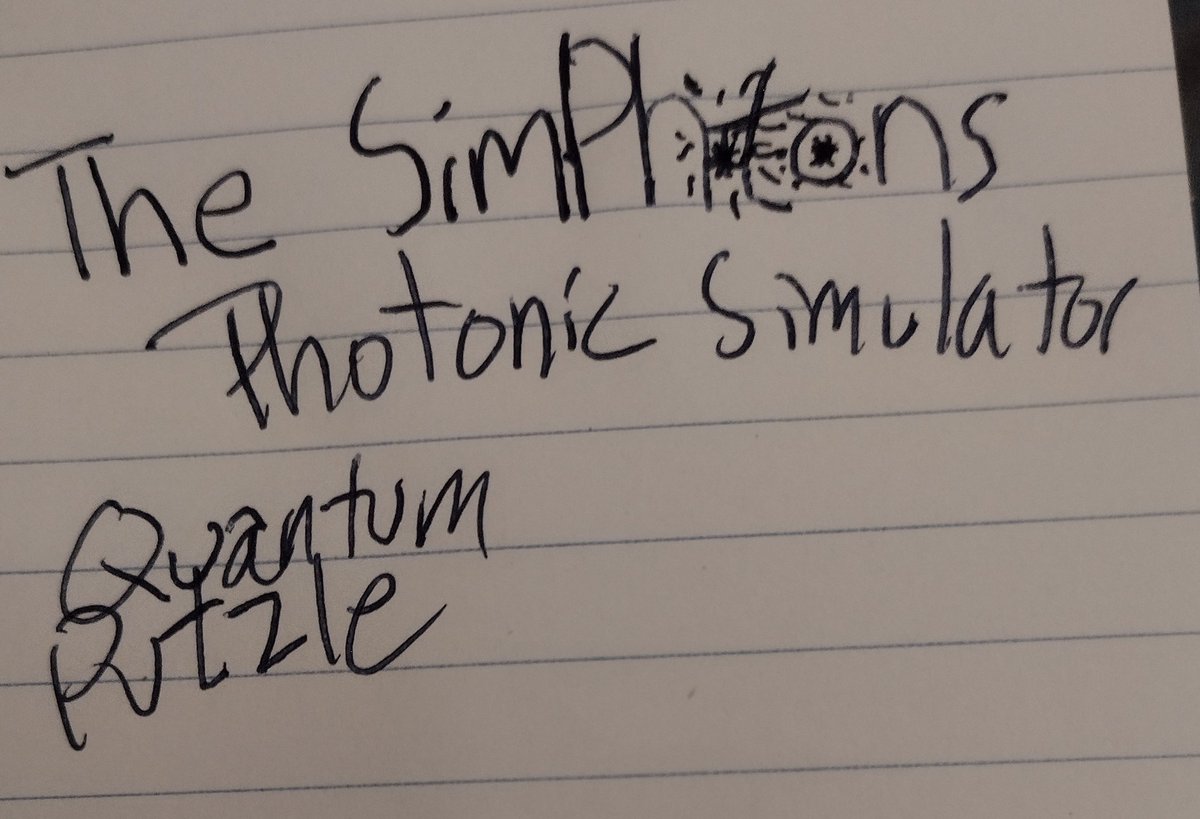 The SimPhotons
Photonic Simulator
Quantum
Puzzle